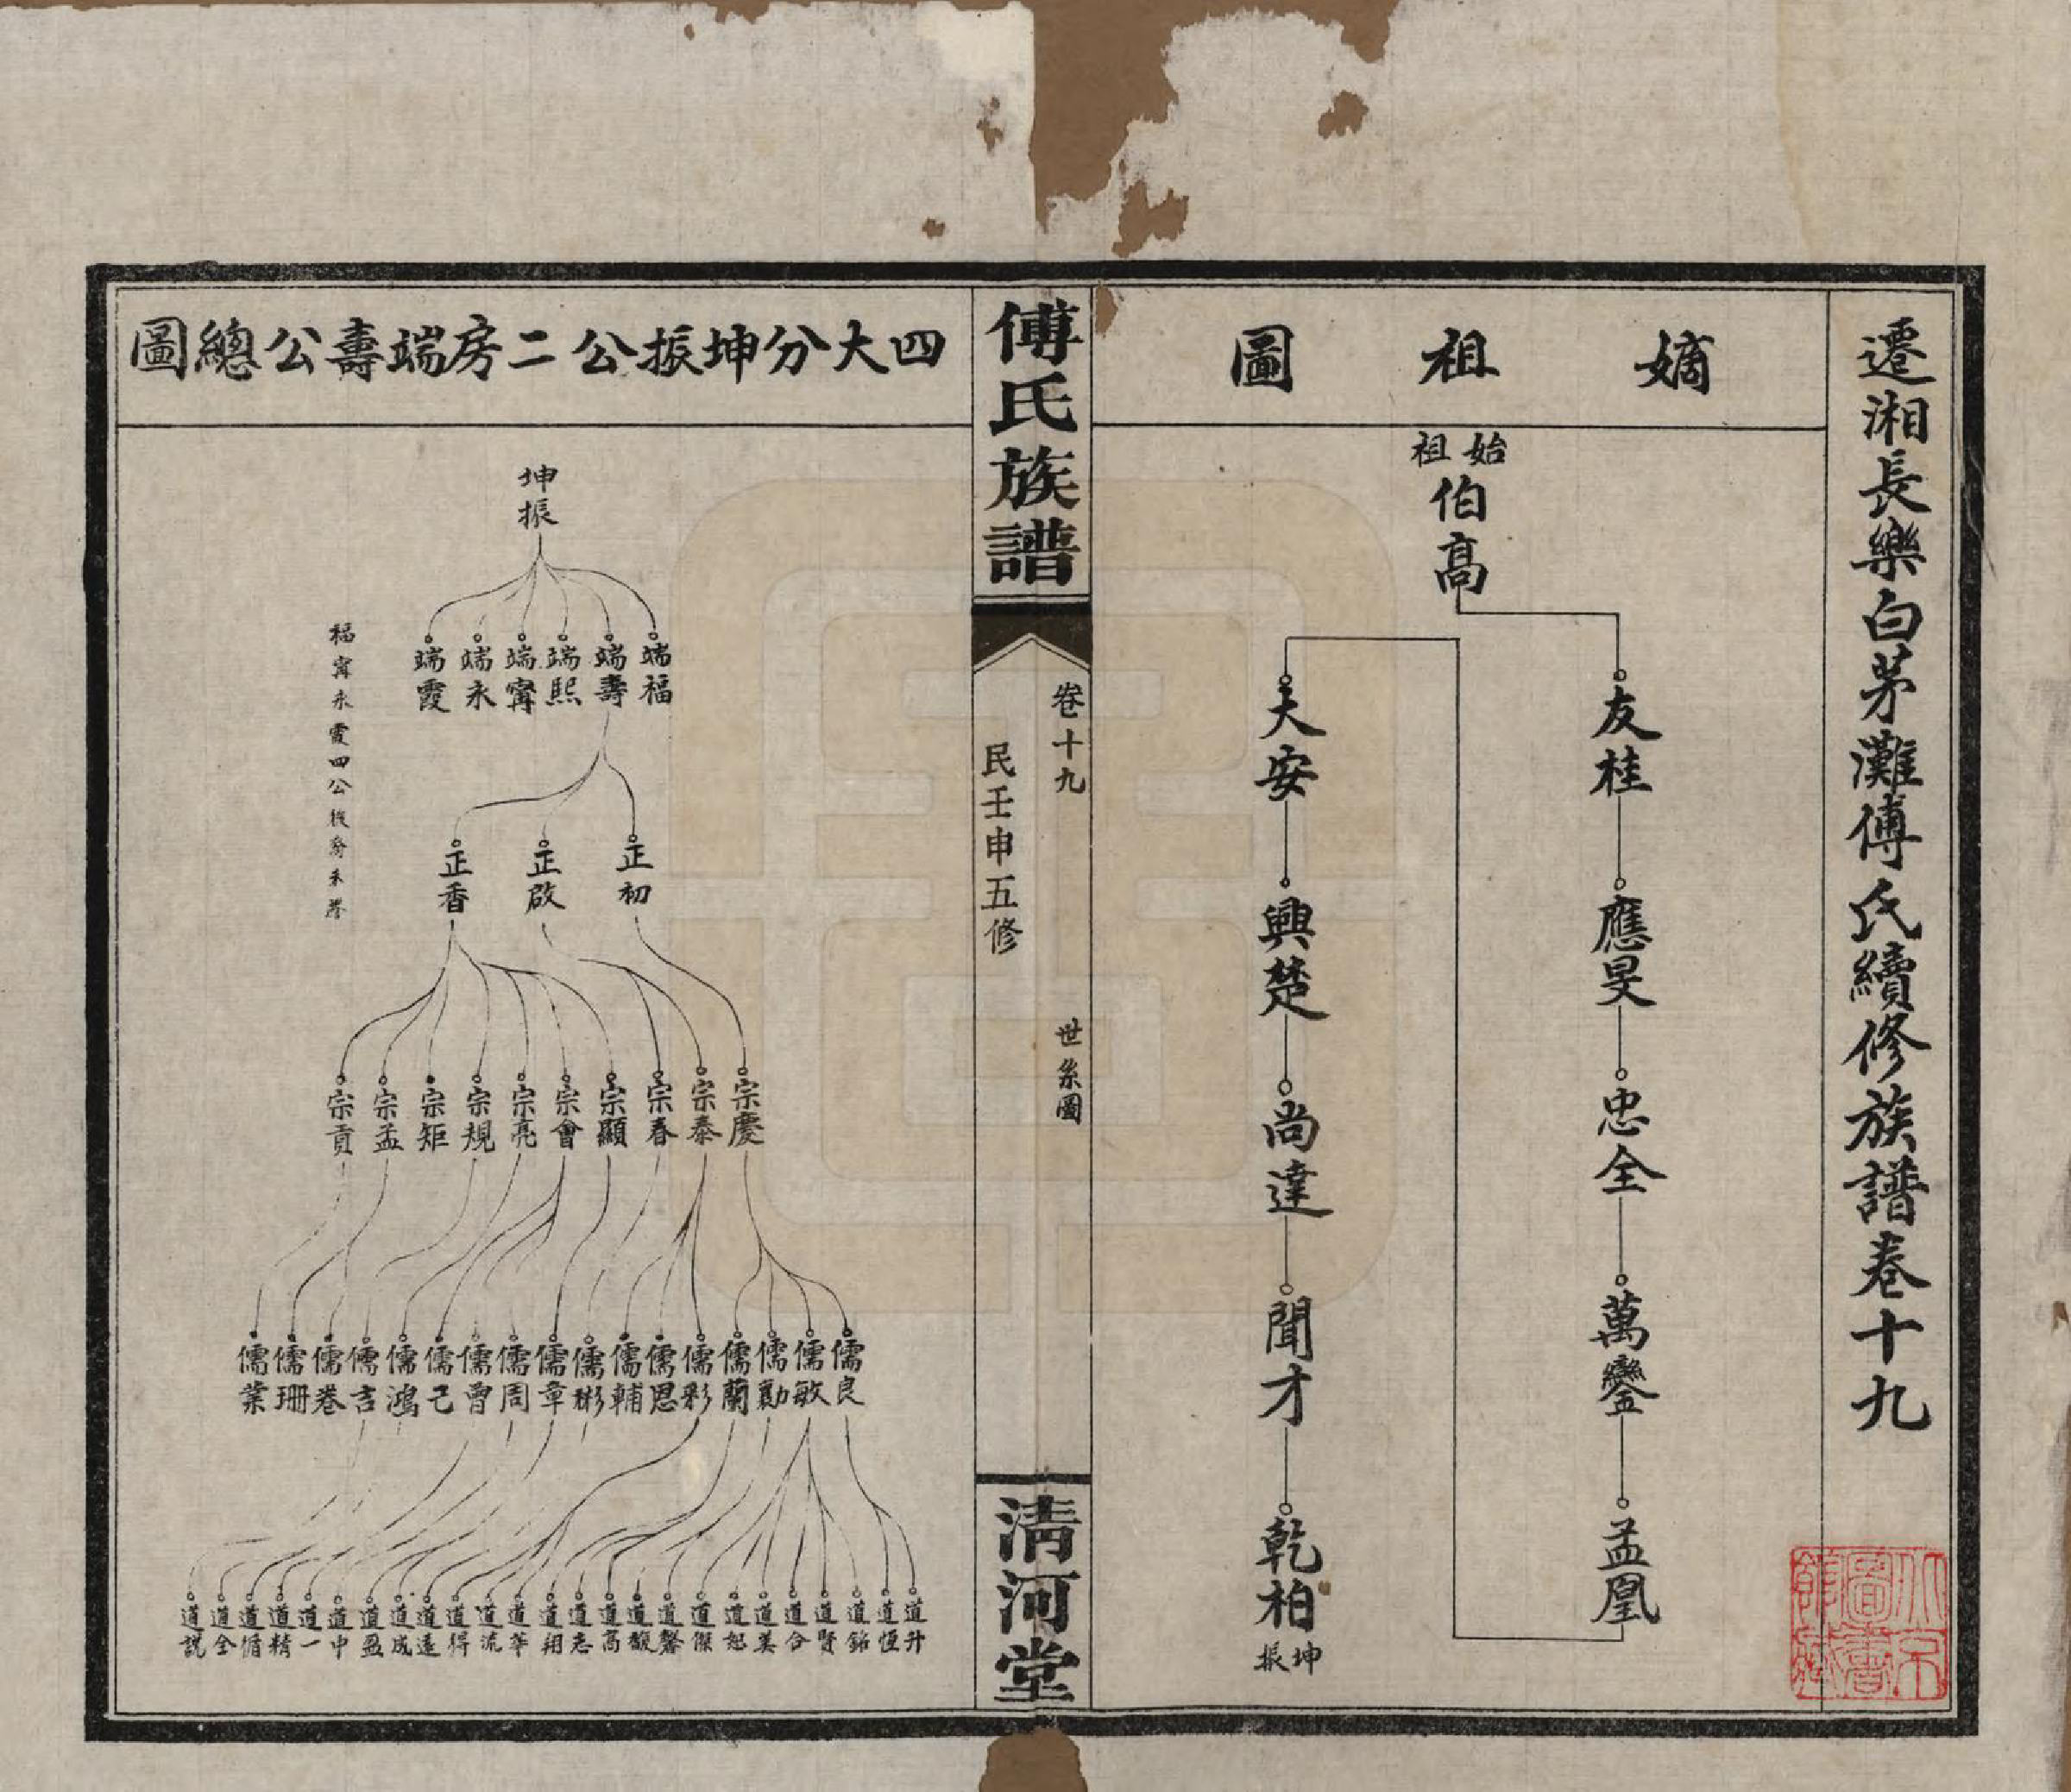 遷湘長樂白茅灘傅氏續修族譜卷十九
嫡祖圖
始祖
伯高
友桂
應旻
忠全
萬鑾
孟凰
天安
興楚
尚達
聞才
乾柏
坤振
傅氏族譜
卷十九
世系圖
民壬申五修
清河堂
四大分坤振公二房端壽公總圖
坤振
端福
端壽
端熙
端甯
端永
端霞
福甯永霞四公後裔未詳
正初
正啟
正香
宗慶
宗泰
宗春
宗顯
宗會
宗亮
宗規
宗矩
宗孟
宗貢
儒良
儒敏
儒勷
儒蘭
儒彩
儒恩
儒輔
儒彬
儒章
儒周
儒曾
儒己
儒鴻
儒吉
儒巻
儒珊
儒業
道升
道恆
道銘
道賢
道合
道美
道恕
道傑
道馨
道馥
道高
道志
道翔
道華
道流
道得
道遠
道成
道盈
道中
道一
道精
道循
道全
道說
北京圖書館藏